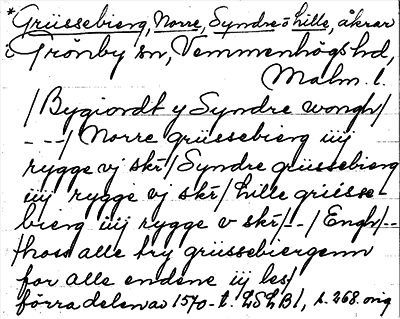 *Grüssebierg, Norre, Syndre o Lille, åkrar
i Grönby sn, Vemmenhögs hd,
Malm. l.
/Bygiordt y Syndre wongh/
---/Norre grüssebierg iiij
rygge vj skr/Syndre grüssebierg
iiij rygge vj skr/Lille grüsse-
bierg iiij rygge v skr/--/Engh/--
/hoss alle try grüssebiergenn
for alle endene iij les/
förra delen av 1570-t. LSLB1, s. 268. orig